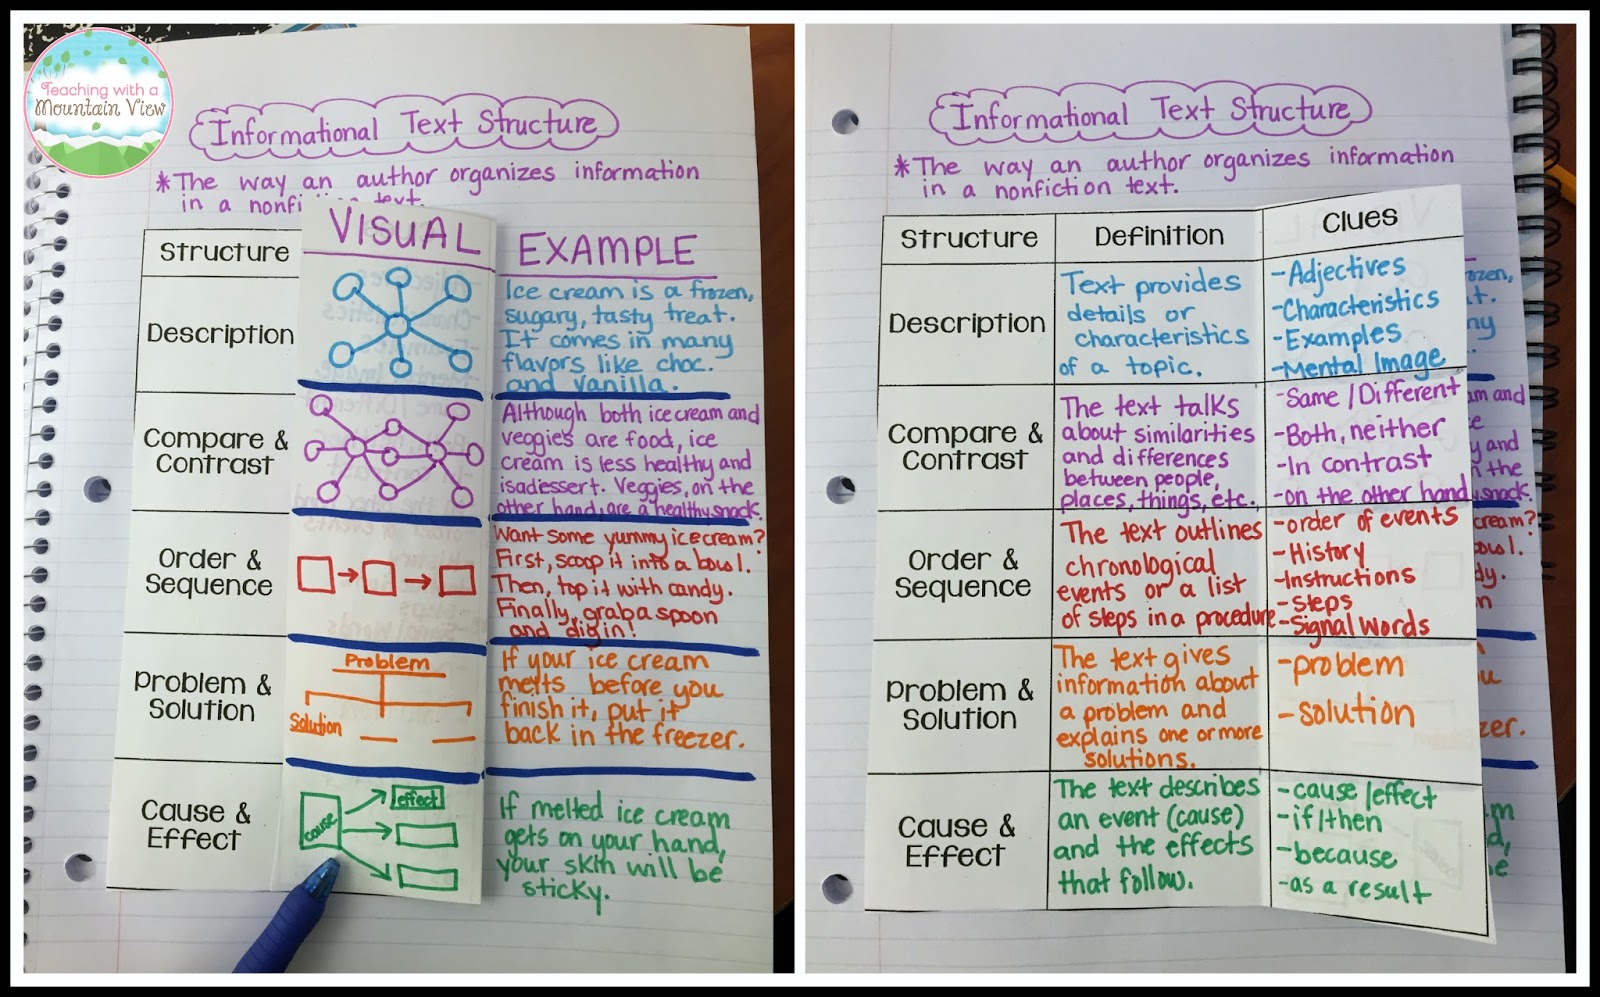 Teaching with a
Mountain View
Informational Text Structure
*The way an author organizes information
in a nonfi text.
Structure
VISUAL
EXAMPLE
Description
Ice cream is a frozen,
sugary, tasty treat.
It comes in many
flavors like choc.
and vanilla.
Compare &
Contrast
Although both ice cream and
veggies are food, ice
cream is less healthy and
isadessert. Veggies, on the
other hand, are a healthy snack.
Order &
Sequence
Want some yummy ice cream?
First, scoop it into a bowl.
Then, top it with candy.
Finally, grab a spoon
and dig in!
Problem &
Solution
Problem
Solution
If your ice cream
melts before you
finish it, put it
back in the freezer.
Cause &
Effect
cause
effect
If melted ice cream
gets on your hand,
your skin will be
sticky.
Informational Text Structure
*The way an author organizes information
in a nonfiction text.
Structure
Definition
Clues
Description
Text provides
details or
characteristics
of a topic.
-Adjectives
-Characteristics
-Examples
-Mental Image
Compare &
Contrast
The text talks
about similarities
and differences
between people,
places, things, etc.
-Same/Different
-Both, neither
-In contrast
-on the other hand
Order &
Sequence
The text outlines
chronological
events or a list
of steps in a procedure
-order of events
-History
-Instructions
-Steps
-Signal words
Problem &
Solution
The text gives
information about
a problem and
explains one or more
solutions.
-problem
-solution
Cause &
Effect
The text describes
an event (cause)
and the effects
that follow.
-cause/effect
-if/then
-because
-as a result